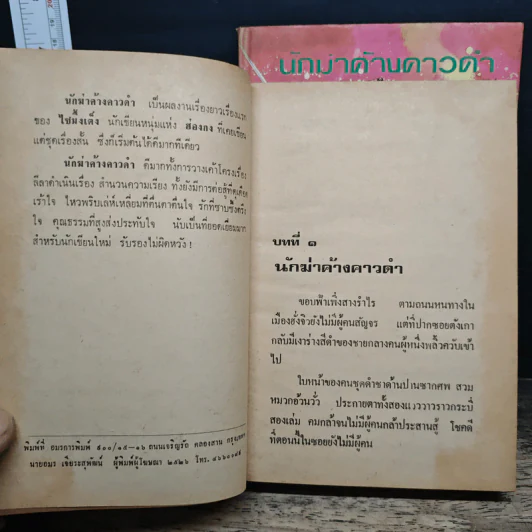 นักฆ่าค้างคาวดำ
นักฆ่าค้างคาวดำ เป็นผลงานเรื่องยาวเรื่องแรก
ของ ไซมึ้งเต็ง นักเขียนหนุ่มแห่ง ฮ่องกง ที่เคยเขียน
แต่ชุดเรื่องสั้น ซึ่งก็เริ่มต้นได้ดีมากทีเดียว
นักฆ่าค้างคาวดำ ดีมากทั้งการวางเค้าโครงเรื่อง
ลีลาดำเนินเรื่อง สำนวนความเรียง ทั้งยังมีการต่อสู้ที่ดุเดือด
เร้าใจ ไหวพริบเล่ห์เหลี่ยมที่ตื่นตาตื่นใจ รักที่ซาบซึ้งตรึง
ใจ คุณธรรมที่สูงส่งประทับใจ นับเป็นที่ยอดเยี่ยมมาก
สำหรับนักเขียนใหม่ รับรองไม่ผิดหวัง !
พิมพ์ที่ อมรการพิมพ์ ๕๐๐/๑๕-๑๖ ถนนเจริญรัถ คลองสาน กรุงเทพฯ
นายอมร เจียระสุพัฒน์ ผู้พิมพ์ผู้โฆษณา ๒๕๒๖ โทร.
บทที่ ๑
นักฆ่าค้างคาวดำ
ขอบฟ้าเพิ่งสางรำไร ตามถนนหนทางใน
เมืองฮั่งจิวยังไม่มีผู้คนสัญจร แต่ที่ปากซอยตั้งเกา
กลับมีเงาร่างสีดำของชายกลางคนผู้หนึ่งพลิ้วควับเข้า
ไป
ใบหน้าของคนชุดดำชาด้านปานซากศพ สวม
หมวกอ้วนวั่ว ประกายตาทั้งสองแวววาวราวกระบี่
สองเล่ม คมกล้าจนไม่มีผู้คนกล้าประสานสู้ โชคดี
ที่ตอนนี้ในซอยยังไม่มีผู้คน